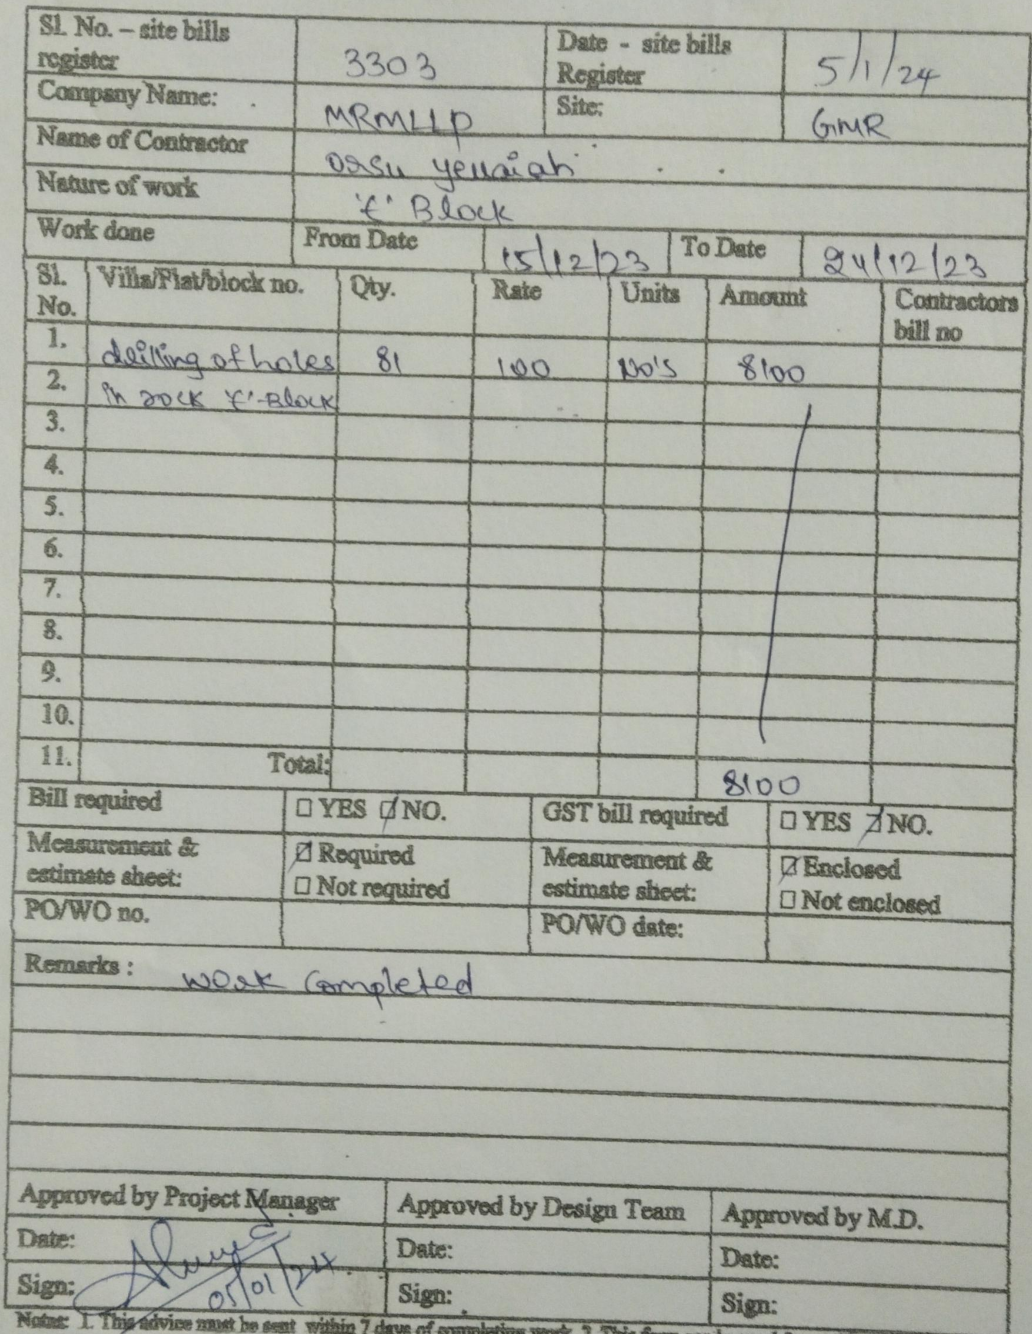 Sl. No. – site bills register 3303 Date - site bills Register 5/1/24
Company Name: MRMLLP Site: GMR
Name of Contractor orsu yellaiah
Nature of work 'C' Block
Work done From Date 15/12/23 To Date 24/12/23
Sl. No. Villa/Flat/block no. Qty. Rate Units Amount Contractors bill no
1. drilling of holes 81 100 No's 8100
2. in rock 'C'-Block
3.
4.
5.
6.
7.
8.
9.
10.
11. Total: 8100
Bill required ☐ YES ☑ NO. GST bill required ☐ YES ☑ NO.
Measurement & estimate sheet: ☑ Required Measurement & estimate sheet: ☑ Enclosed
☐ Not required ☐ Not enclosed
PO/WO no. PO/WO date:
Remarks : work completed
Approved by Project Manager Approved by Design Team Approved by M.D.
Date: Date: Date:
Sign: 05/01/24 Sign: Sign:
Notes: 1. This advice must be sent within 7 days of completing work. 2. This form